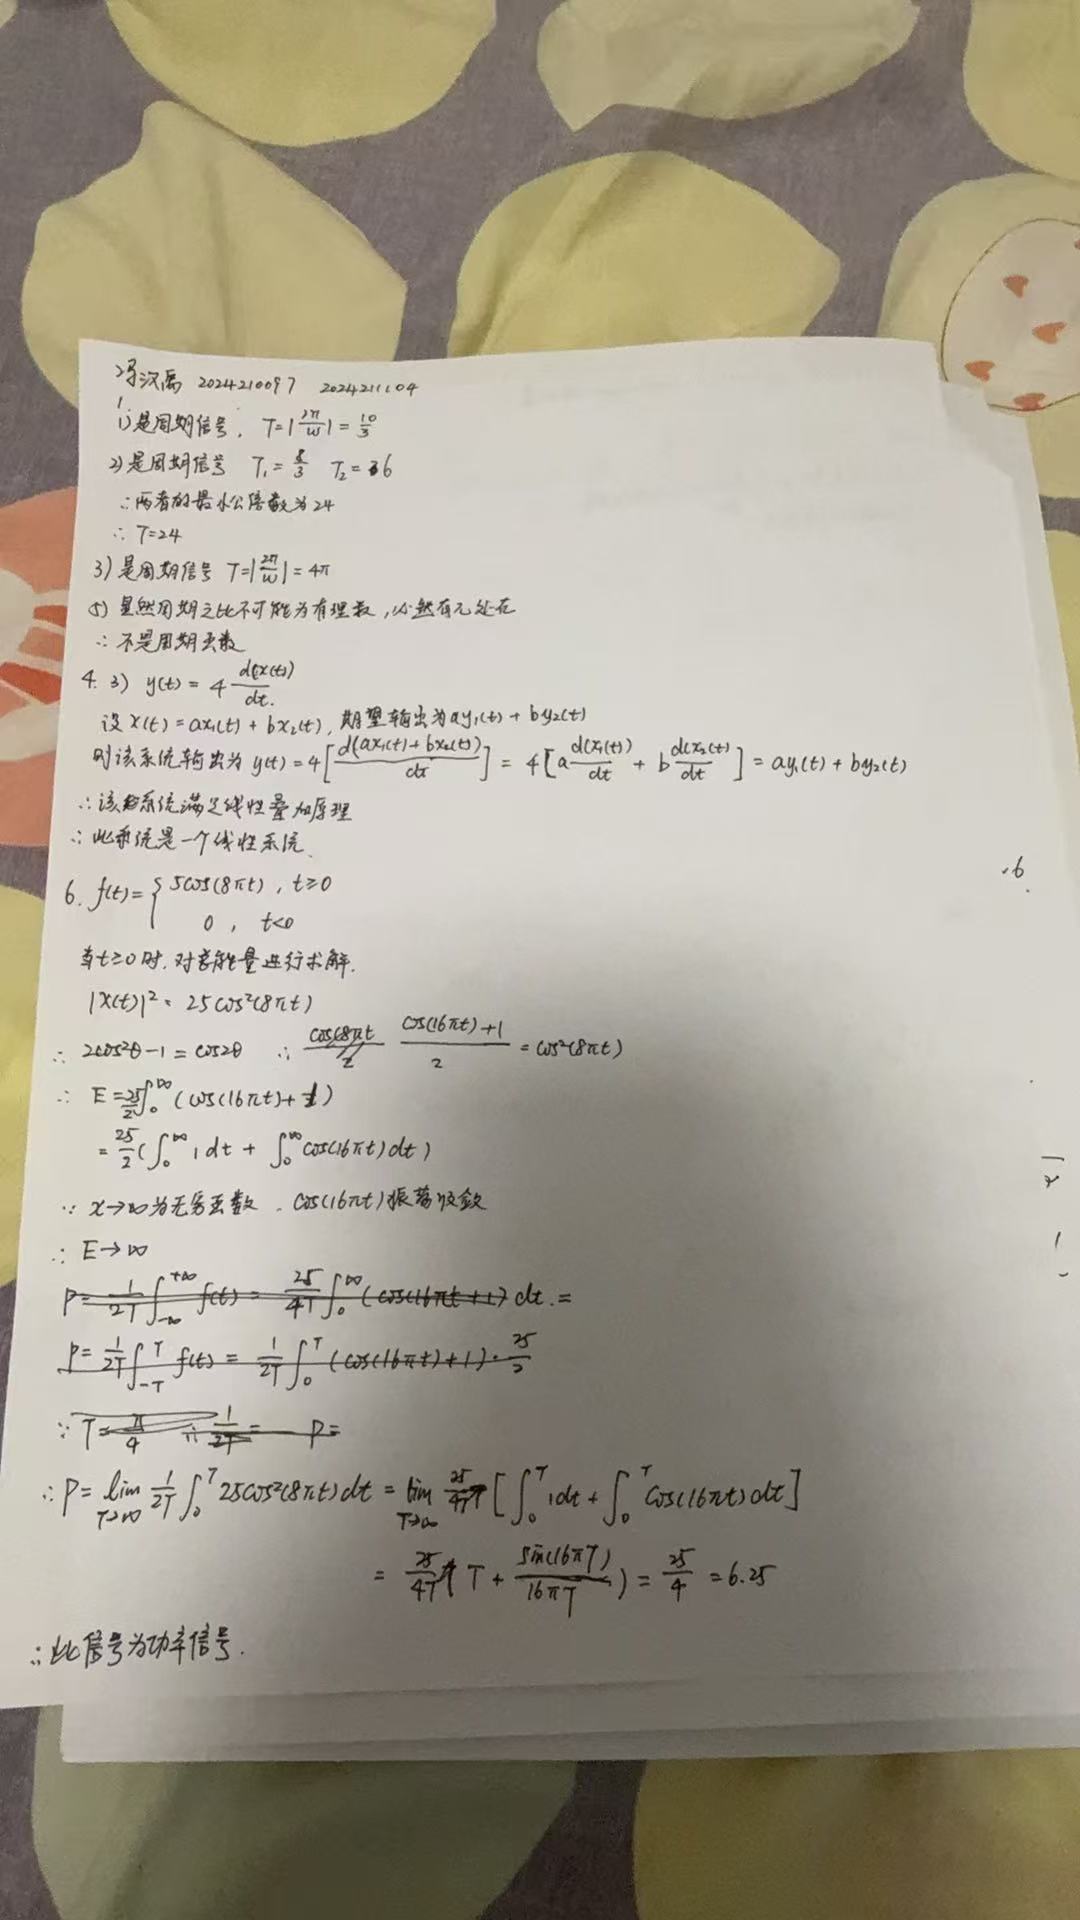 冯汉禹 2024210097 2024211104
1.
1) 是周期信号. T=|2π/w|=10/3
2) 是周期信号 T₁=8/3 T₂=6
∴两者的最小公倍数为24
∴ T=24
3) 是周期信号 T=|2π/w|=4π
5) 显然周期之比不可能为有理数,必然有π处在
∴ 不是周期函数
4. 3) y(t) = 4 d(x(t))/dt.
设 x(t) = ax₁(t) + bx₂(t), 期望输出为 ay₁(t) + by₂(t)
则该系统输出为 y(t) = 4[d(ax₁(t)+bx₂(t))/dt] = 4[a d(x₁(t))/dt + b d(x₂(t))/dt] = ay₁(t) + by₂(t)
∴该系统满足线性叠加原理
∴ 此系统是一个线性系统.
6. f(t) = { 5cos(8πt), t≥0
0, t<0
.6
当t≥0时. 对其能量进行求解.
|x(t)|² = 25cos²(8πt)
∴ 2cos²θ-1 = cos2θ ∴ (cos(16πt)+1)/2 = cos²(8πt)
∴ E = 25/2 ∫₀^∞ (cos(16πt)+1)
= 25/2 (∫₀^∞ 1dt + ∫₀^∞ cos(16πt)dt)
∵ x→∞为无穷函数. cos(16πt)振荡收敛
∴ E→∞
P = 1/2T ∫₋∞^+∞ f(t) = 25/4T ∫₀^∞ (cos(16πt+1) dt. =
P = 1/2T ∫₋T^T f(t) = 1/2T ∫₀^T (cos(16πt)+1)·25/2
∵ T=π/4 ∴ 1/2T = P=
∴ P = lim T→∞ 1/2T ∫₀^T 25cos²(8πt)dt = lim T→∞ 25/4T [∫₀^T 1dt + ∫₀^T cos(16πt)dt]
= 25/4T (T + sin(16πT)/16πT) = 25/4 = 6.25
∴此信号为功率信号.